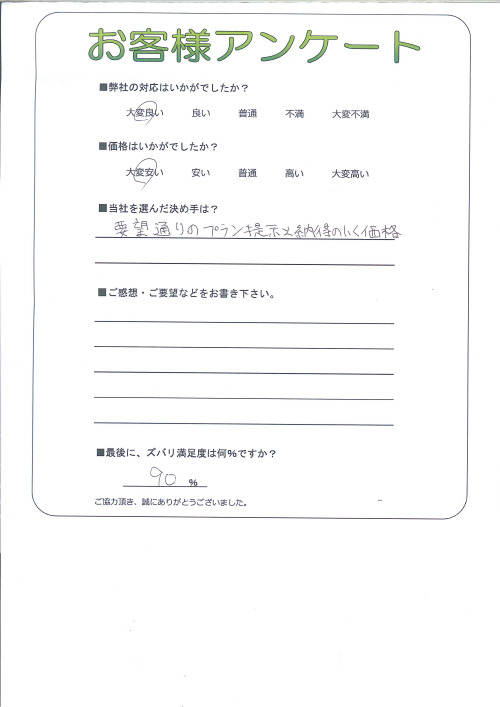 お客様アンケート
■弊社の対応はいかがでしたか？
大変良い 良い 普通 不満 大変不満
■価格はいかがでしたか？
大変安い 安い 普通 高い 大変高い
■当社を選んだ決め手は？
要望通りのプラン提示と納得のいく価格
■ご感想・ご要望などをお書き下さい。
■最後に、ズバリ満足度は何％ですか？
90 %
ご協力頂き、誠にありがとうございました。